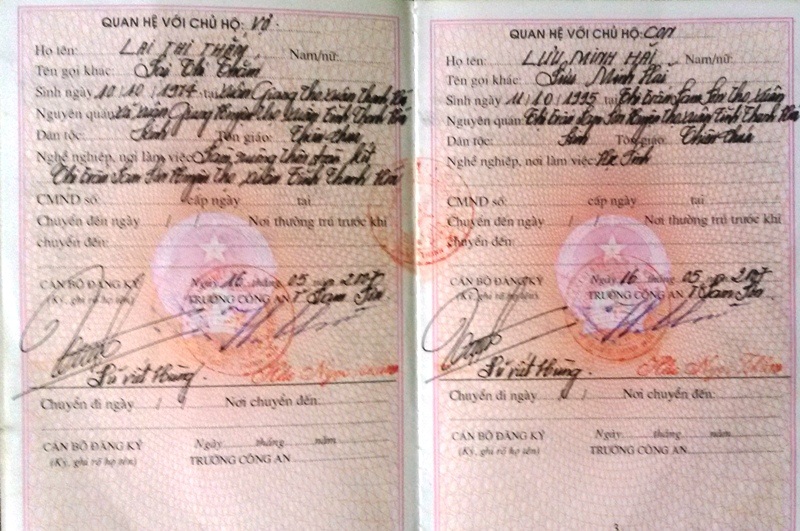 QUAN HỆ VỚI CHỦ HỘ: Vợ
Họ tên: LẠI THỊ THẮM Nam/nữ:
Tên gọi khác: Lại Thị Thắm
Sinh ngày 10/10/1974 tại Xuân Giang Thọ Xuân Thanh Hoá
Nguyên quán: Xã Xuân Giang Huyện Thọ Xuân Tỉnh Thanh Hoá
Dân tộc: Kinh Tôn giáo:
Nghề nghiệp, nơi làm việc:
Thị trấn Lam Sơn Huyện Thọ Xuân Tỉnh Thanh Hoá
CMND số: cấp ngày tại
Chuyển đến ngày / / Nơi thường trú trước khi
chuyển đến:
CÁN BỘ ĐĂNG KÝ Ngày 16 tháng 05 năm 2007
(Ký, ghi rõ họ tên) TRƯỞNG CÔNG AN T Lam Sơn
Lê Viết Hùng
Chuyển đi ngày / / Nơi chuyển đến:
CÁN BỘ ĐĂNG KÝ Ngày tháng năm
(Ký, ghi rõ họ tên) TRƯỞNG CÔNG AN
QUAN HỆ VỚI CHỦ HỘ: CON
Họ tên: LƯU MINH HẢI Nam/nữ:
Tên gọi khác: Lưu Minh Hải
Sinh ngày 11/10/1995 tại Thị trấn Lam Sơn Thọ Xuân
Nguyên quán: Thị trấn Lam Sơn Huyện Thọ Xuân Tỉnh Thanh Hoá
Dân tộc: Kinh Tôn giáo:
Nghề nghiệp, nơi làm việc: Học Sinh
CMND số: cấp ngày tại
Chuyển đến ngày / / Nơi thường trú trước khi
chuyển đến:
CÁN BỘ ĐĂNG KÝ Ngày 16 tháng 05 năm 2007
(Ký, ghi rõ họ tên) TRƯỞNG CÔNG AN T Lam Sơn
Lê Viết Hùng
Chuyển đi ngày / / Nơi chuyển đến:
CÁN BỘ ĐĂNG KÝ Ngày tháng năm
(Ký, ghi rõ họ tên) TRƯỞNG CÔNG AN
3